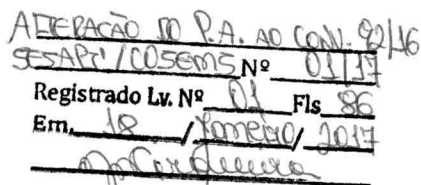 ALTERAÇÃO DO P.A. AO CONV. 92/16
SESAPI/COSEMS Nº 01/17
Registrado Lv. Nº 01 Fls 86
Em, 18 / Janeiro / 2017